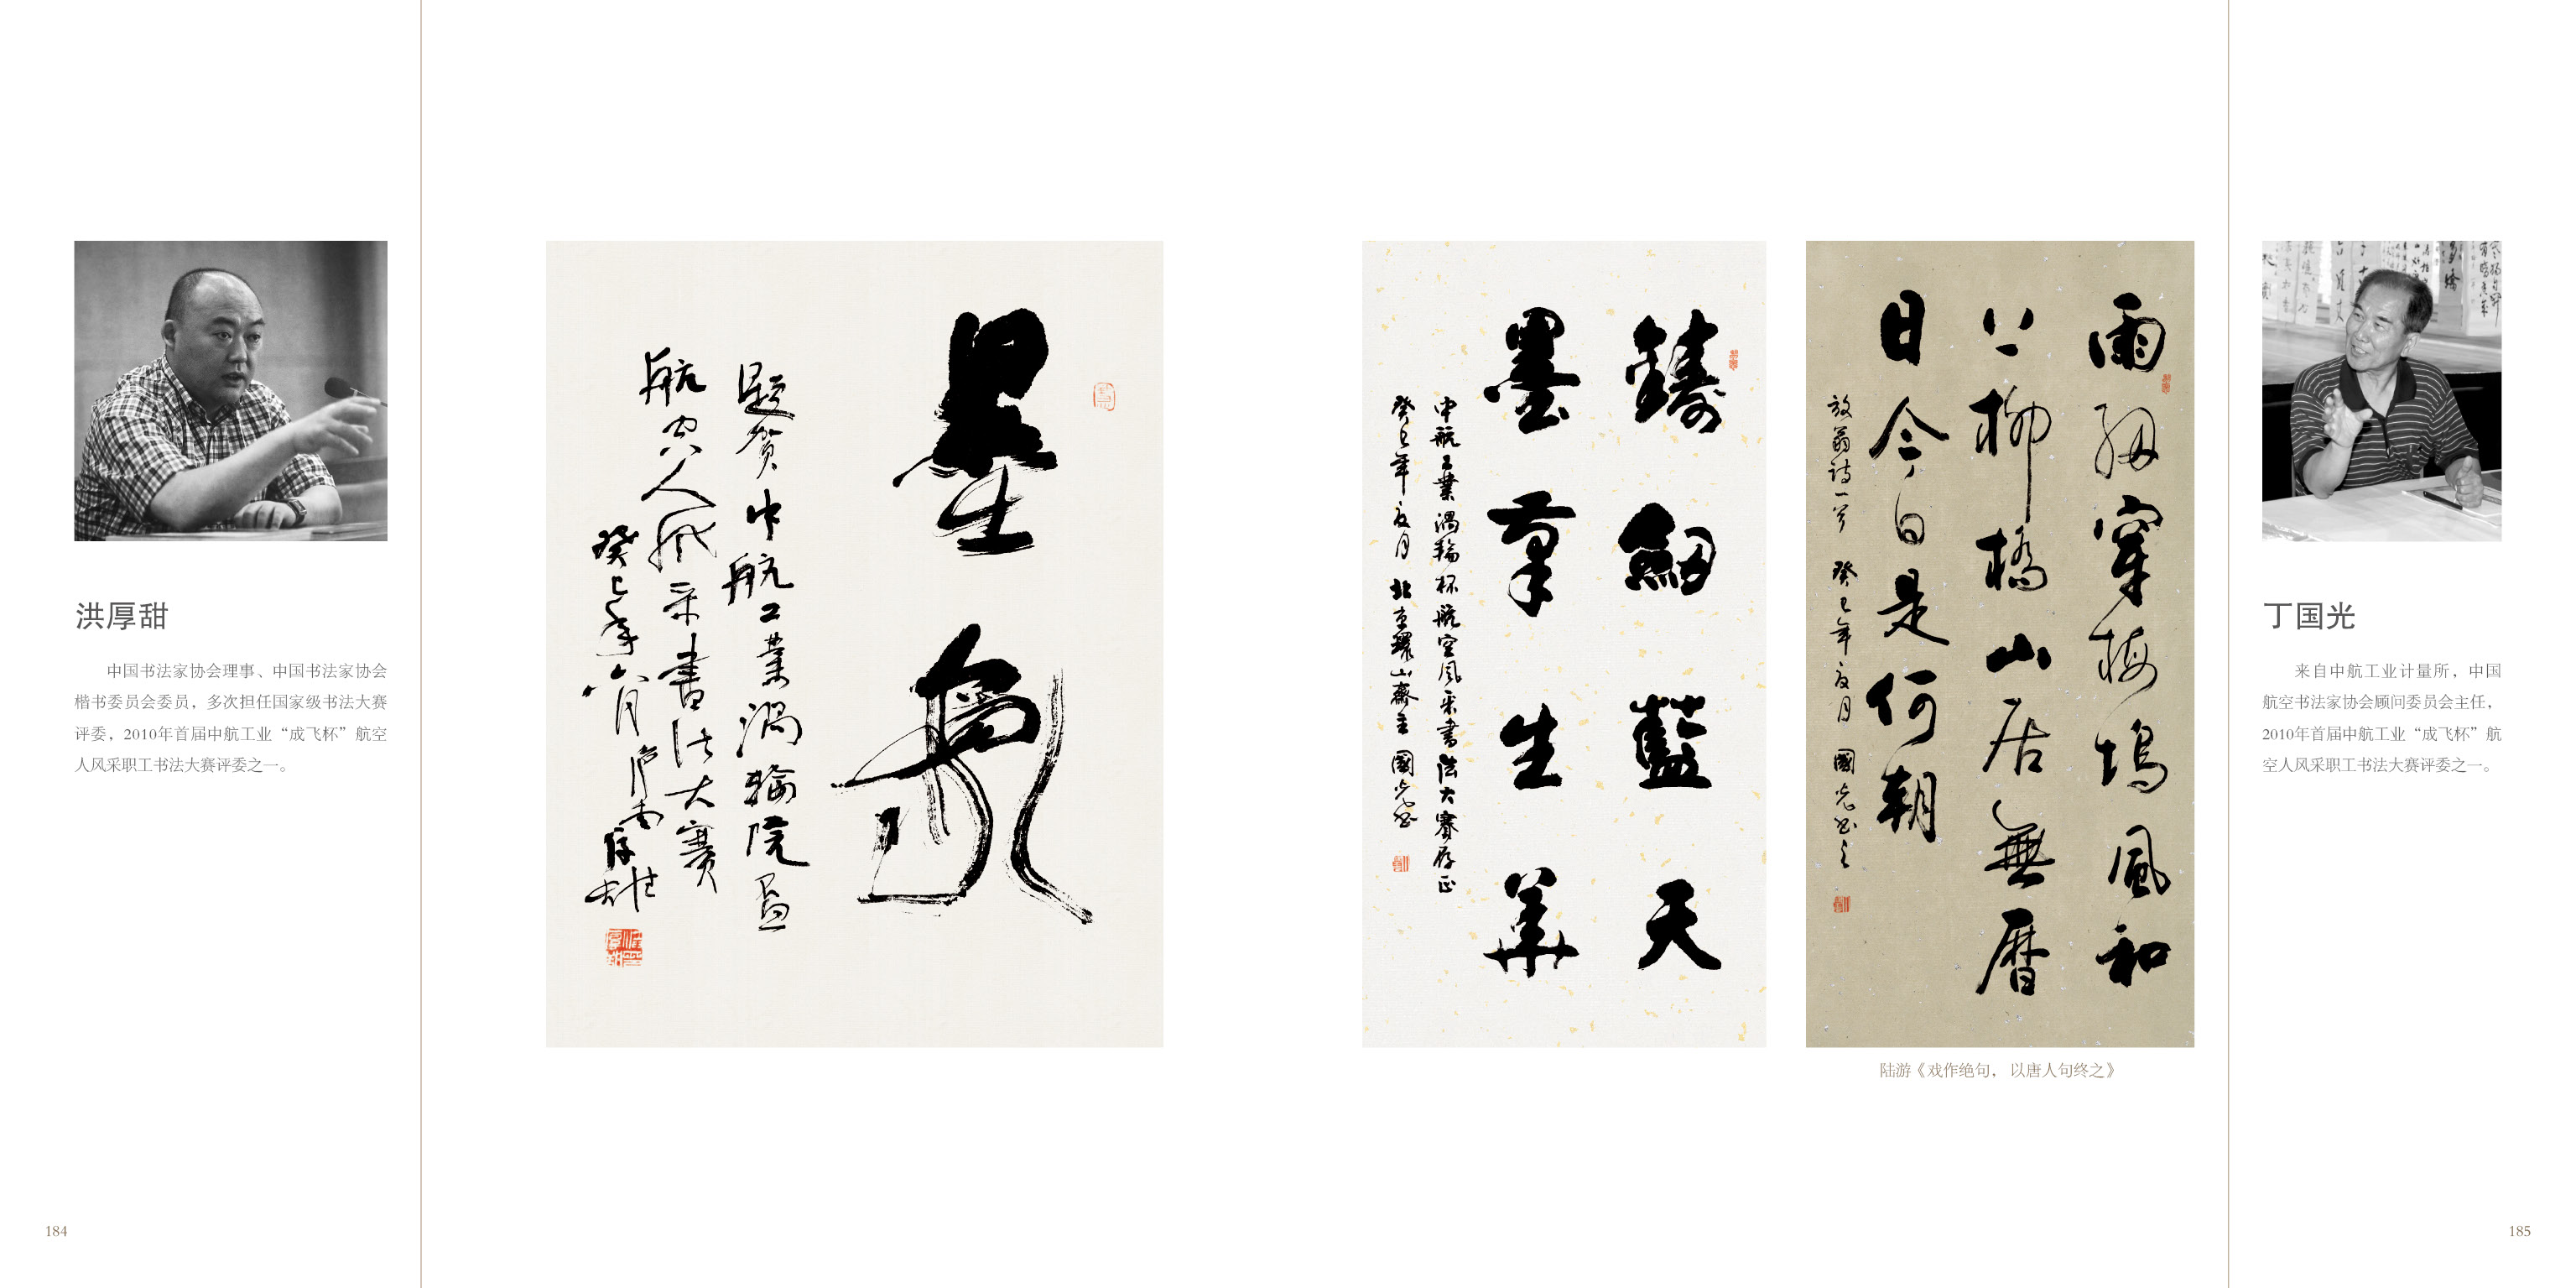 洪厚甜
中国书法家协会理事、中国书法家协会
楷书委员会委员，多次担任国家级书法大赛
评委，2010年首届中航工业“成飞杯”航空
人风采职工书法大赛评委之一。
184
墨象
题贺中航工業涡輪院盃
航空人风采書法大赛
癸巳年六月
鑄劍藍天
墨筆生華
中航工業渦輪杯航空风采書法大賽存正
癸巳年夏月 北京環山齋主 國光书
雨細穿梅塢風和
上柳橋山居無曆
日今日是何朝
放翁诗一首 癸巳年夏月 國光书之
陆游《戏作绝句，以唐人句终之》
丁国光
来自中航工业计量所，中国
航空书法家协会顾问委员会主任，
2010年首届中航工业“成飞杯”航
空人风采职工书法大赛评委之一。
185